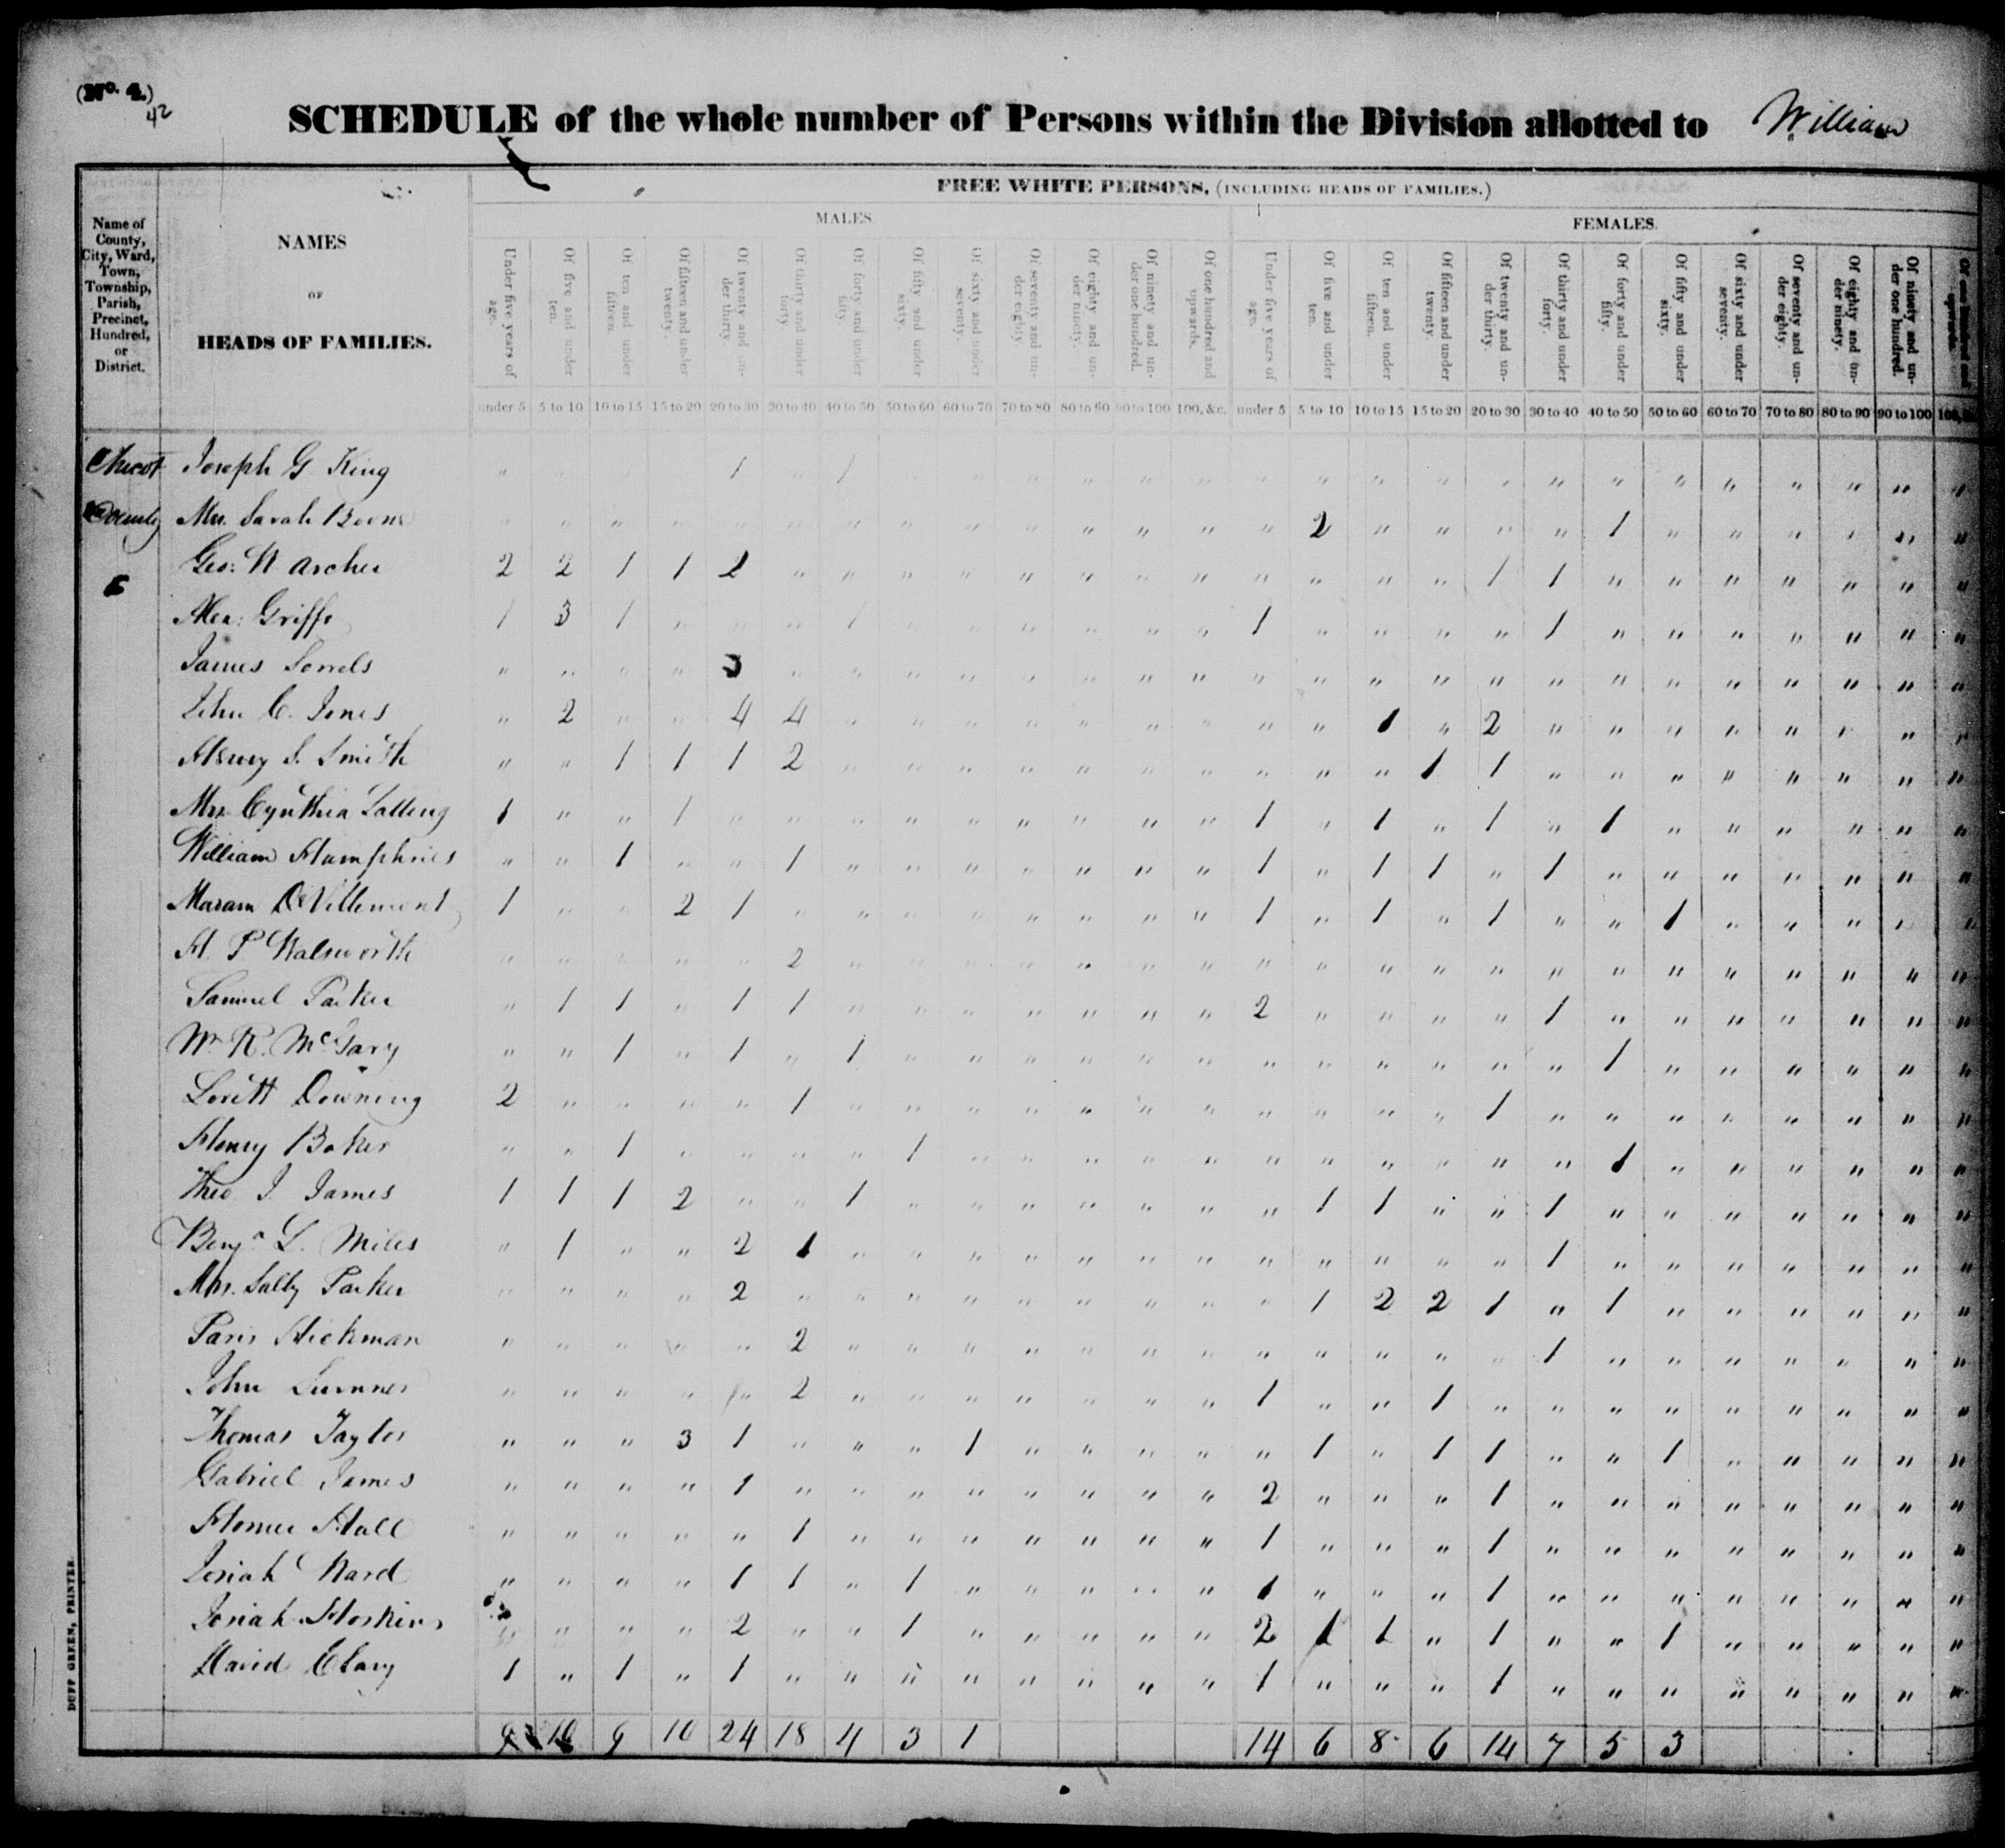 (No. 4.)
42
SCHEDULE of the whole number of Persons within the Division allotted to William
FREE WHITE PERSONS, (INCLUDING HEADS OF FAMILIES.)
MALES.
FEMALES.
Name of County, City, Ward, Town, Township, Parish, Precinct, Hundred, or District.
NAMES
OF
HEADS OF FAMILIES.
Under five years of age. Of five and under ten. Of ten and under fifteen. Of fifteen and under twenty. Of twenty and under thirty. Of thirty and under forty. Of forty and under fifty. Of fifty and under sixty. Of sixty and under seventy. Of seventy and under eighty. Of eighty and under ninety. Of ninety and under one hundred. Of one hundred and upwards. Under five years of age. Of five and under ten. Of ten and under fifteen. Of fifteen and under twenty. Of twenty and under thirty. Of thirty and under forty. Of forty and under fifty. Of fifty and under sixty. Of sixty and under seventy. Of seventy and under eighty. Of eighty and under ninety. Of ninety and under one hundred. Of one hundred and upwards.
under 5 5 to 10 10 to 15 15 to 20 20 to 30 30 to 40 40 to 50 50 to 60 60 to 70 70 to 80 80 to 90 90 to 100 100, &c. under 5 5 to 10 10 to 15 15 to 20 20 to 30 30 to 40 40 to 50 50 to 60 60 to 70 70 to 80 80 to 90 90 to 100
Chicot Joseph G King " " " " 1 " 1 " " " " " " " " " " " " " " " " " " "
County Mrs. Sarah Boone " " " " " " " " " " " " " " 2 " " " " 1 " " " " " "
Geo: W Archer 2 2 1 1 2 " " " " " " " " " " " " 1 1 " " " " " " "
Alex: Griffe 1 3 1 " " " 1 " " " " " " 1 " " " " 1 " " " " " " "
James Sorrels " " " " 3 " " " " " " " " " " " " " " " " " " " " "
John C. Jones " 2 " " 4 4 " " " " " " " " " 1 " 2 " " " " " " " "
Henry S. Smith " " 1 1 1 2 " " " " " " " " " " 1 1 " " " " " " " "
Mrs Cynthia 1 " " 1 " " " " " " " " " 1 " 1 " 1 " 1 " " " " " "
William Humphries " " 1 " " 1 " " " " " " " 1 " 1 1 " 1 " " " " " " "
Maram DeVillemont 1 " " 2 1 " " " " " " " " 1 " 1 " 1 " " 1 " " " " "
H. P Walsworth " " " " " 2 " " " " " " " " " " " " " " " " " " " "
Samuel Parker " 1 1 " 1 1 " " " " " " " 2 " " " " 1 " " " " " " "
Wm R. McGary " " 1 " 1 " 1 " " " " " " " " " " " " 1 " " " " " "
Lovett Downing 2 " " " " 1 " " " " " " " " " " " 1 " " " " " " " "
Henry Baker " " 1 " " " " 1 " " " " " " " " " " " 1 " " " " " "
Theo J. James 1 1 1 2 " " 1 " " " " " " " 1 1 " " 1 " " " " " " "
Benja L. Miles " 1 " " 2 1 " " " " " " " " " " " " 1 " " " " " " "
Mrs. Sally Parker " " " " 2 " " " " " " " " " 1 2 2 1 " 1 " " " " " "
Paris Hickman " " " " " 2 " " " " " " " " " " " " 1 " " " " " " "
John Sumner " " " " " 2 " " " " " " " 1 " " 1 " " " " " " " " "
Thomas Taylor " " " 3 1 " " " 1 " " " " " 1 " 1 1 " " 1 " " " " "
Gabriel James " " " " 1 " " " " " " " " 2 " " " 1 " " " " " " " "
Homer Hall " " " " " 1 " " " " " " " 1 " " " 1 " " " " " " " "
Josiah Ward " " " " 1 1 " 1 " " " " " 1 " " " 1 " " " " " " " "
Josiah Hoskins " " " " 2 " " 1 " " " " " 2 1 1 " 1 " " 1 " " " " "
David Clary 1 " 1 " 1 " " " " " " " " 1 " " " 1 " " " " " " " "
10 9 10 24 18 4 3 1 14 6 8 6 14 7 5 3
DUFF GREEN, PRINTER.